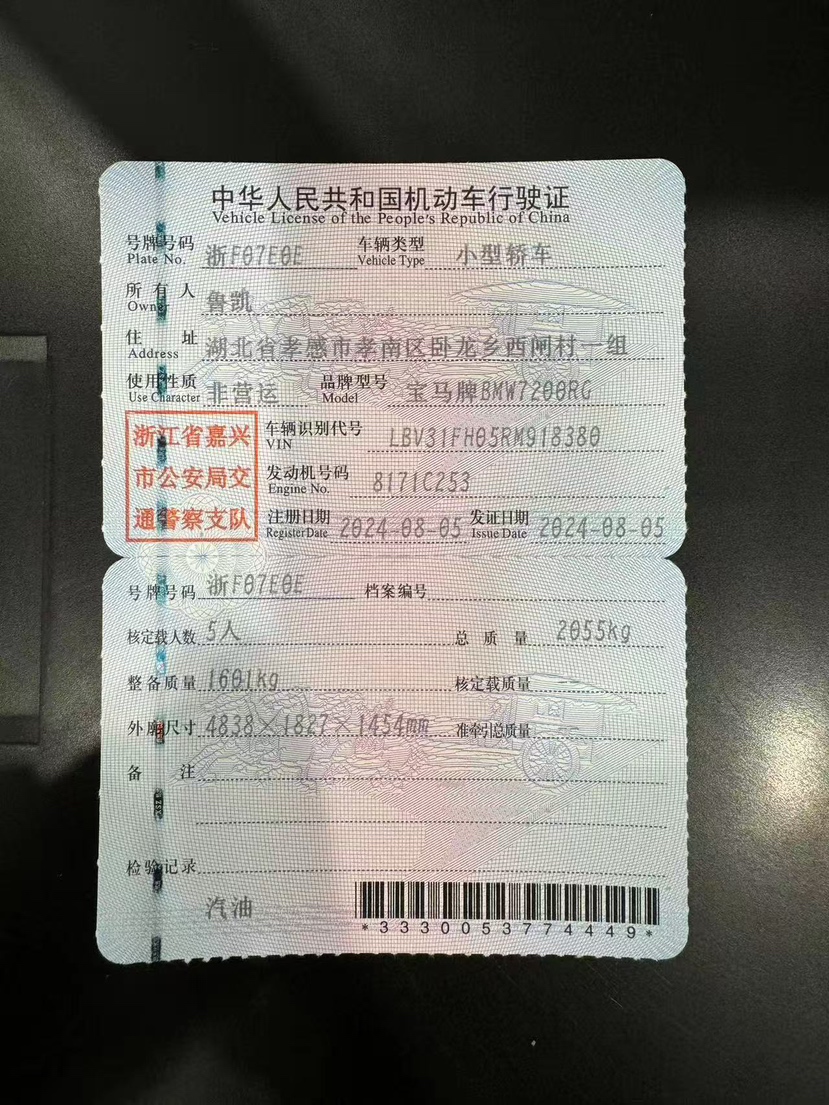 中华人民共和国机动车行驶证
Vehicle License of the People's Republic of China
号牌号码 浙F07E0E 车辆类型 小型轿车
Plate No. Vehicle Type
所有人 鲁凯
Owner
住址 湖北省孝感市孝南区卧龙乡西闸村一组
Address
使用性质 非营运 品牌型号 宝马牌BMW7200RG
Use Character Model
浙江省嘉兴
市公安局交
通警察支队
车辆识别代号 LBV31FH05RM918380
VIN
发动机号码 8171C253
Engine No.
注册日期 2024-08-05 发证日期 2024-08-05
Register Date Issue Date
号牌号码 浙F07E0E 档案编号
核定载人数 5人 总质量 2055kg
整备质量 1601kg 核定载质量
外廓尺寸 4838×1827×1454mm 准牵引总质量
备注
检验记录
汽油
*3330053774449*